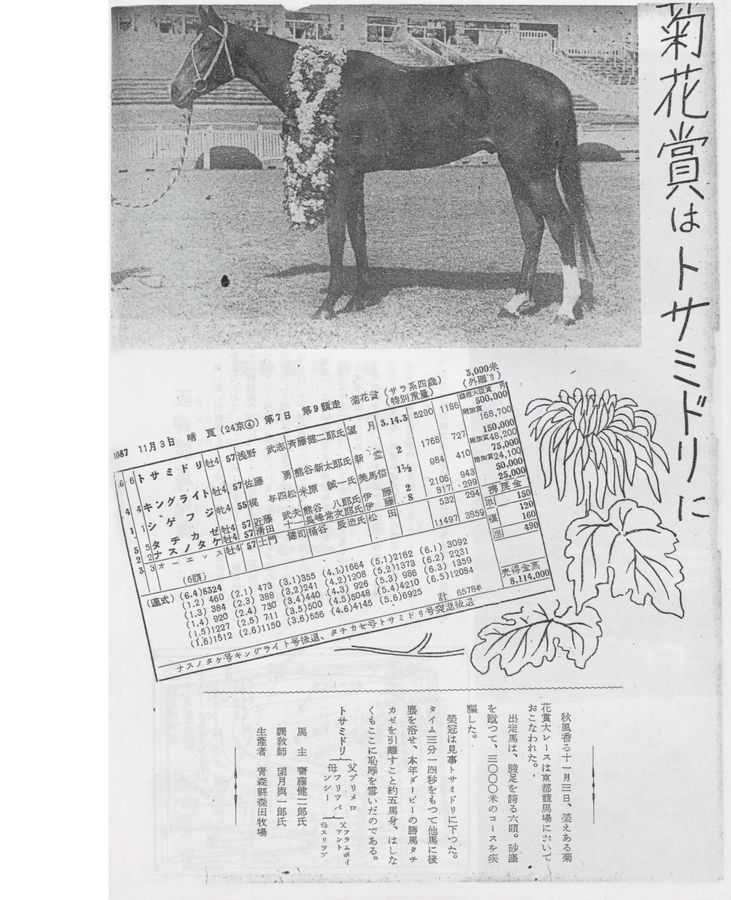 菊花賞はトサミドリに
1087 11月3日 晴 良 (24京④) 第7日 第9競走 菊花賞 (サラ系四歳) (特別重量) 3,000米 (外廻り)
6 6 トサミドリ 牡4 57 浅野 武志 斉藤健二郎氏 望月 3.14.3 5290 1186
4 4 キングライト 牡4 57 佐藤 勇 熊谷新太郎氏 2 1768 727
1 1 シゲフジ 牝4 55 梶 与四松 米原 誠一氏 美馬信 1½ 984 410
5 5 タチカゼ 牡4 57 近藤 武夫 熊谷 八郎氏 伊藤 2 2106 943
2 2 ナスノタケ 牡4 57 清田 十一 長峰常次郎氏 伊藤 8 817 299
3 3 オーエッス 牡4 57 土門 健司 桶谷 辰造氏 松田 532 294
(6頭) 11497 3859
500,000
附加賞 168,700
150,000
附加賞 48,200
75,000
附加賞 24,100
50,000
25,000
携戻金
単 150
複 120
160
連 490
売得金高
8,114,000
(連式) (6.4) 8524
(1.2) 460 (2.1) 473 (3.1) 355 (4.1) 1664 (5.1) 2162 (6.1) 3092
(1.3) 384 (2.3) 388 (3.2) 241 (4.2) 1208 (5.2) 1373 (6.2) 2231
(1.4) 920 (2.4) 730 (3.4) 440 (4.3) 926 (5.3) 986 (6.3) 1359
(1.5) 1227 (2.5) 711 (3.5) 500 (4.5) 5048 (5.4) 4210 (6.5) 12084
(1.6) 1512 (2.6) 1150 (3.6) 556 (4.6) 4145 (5.6) 6925 計 65784
ナスノタケ号キングライト号後退、タチカゼ号トサミドリ号突進後退
秋風香る十一月三日、栄えある菊
花賞大レースは京都競馬場において
おこなわれた。
出走馬は、駿足を誇る六頭。砂塵
を蹴つて、三〇〇〇米のコースを疾
駆した。
栄冠は見事トサミドリに下つた。
タイム三分一四秒をもつて他馬に後
塵を浴せ、本年ダービーの勝馬タチ
カゼを引離すこと約五馬身、はしな
くもここに恥辱を雪いだのである。
トサミドリ 父プリメロ
母フリツパンシー 父フラムボイアント
母スリツプ
馬主 齋藤健二郎氏
調教師 望月與一郎氏
生産者 青森縣森田牧場